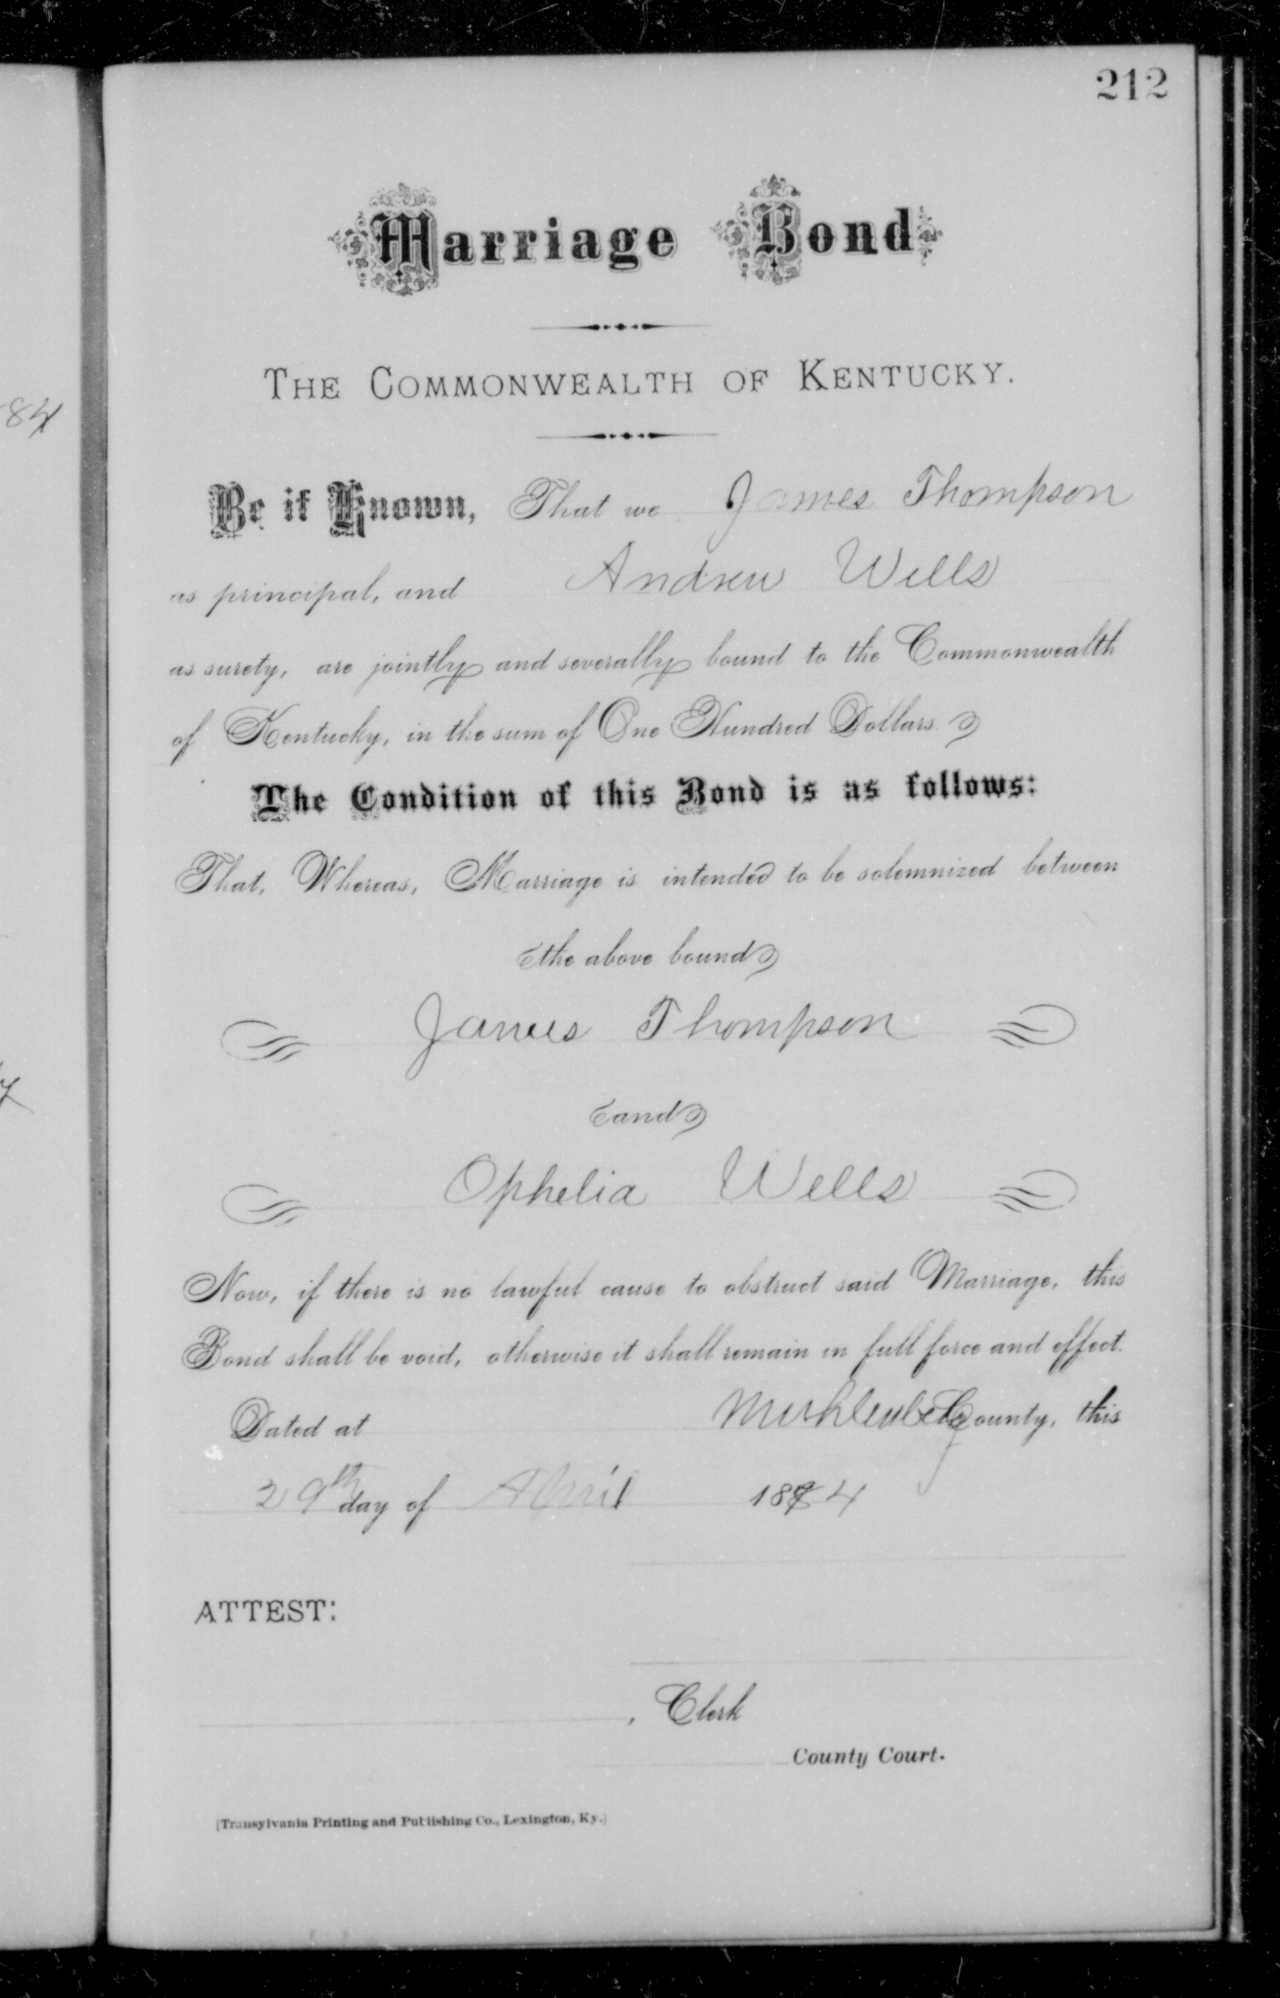 212
84
Marriage Bond
THE COMMONWEALTH OF KENTUCKY.
Be it Known, That we James Thompson
as principal, and Andrew Wells
as surety, are jointly and severally bound to the Commonwealth
of Kentucky, in the sum of One Hundred Dollars.
The Condition of this Bond is as follows:
That, Whereas, Marriage is intended to be solemnized between
the above bound
James Thompson
and
Ophelia Wells
Now, if there is no lawful cause to obstruct said Marriage, this
Bond shall be void, otherwise it shall remain in full force and effect.
Dated at Muhlenbe County, this
29th day of April 1884
ATTEST:
, Clerk
County Court.
[Transylvania Printing and Publishing Co., Lexington, Ky.]